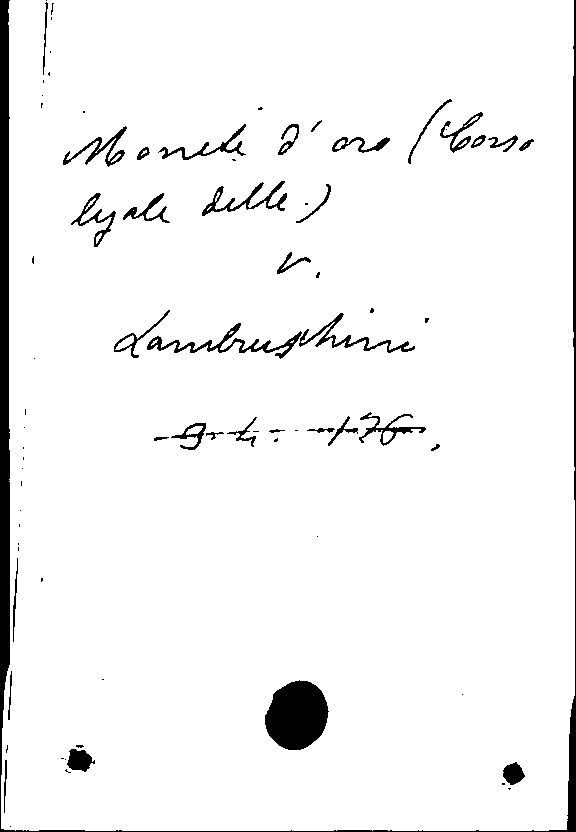 Monete d'oro (Corso
legale delle)
v.
Lambruschini